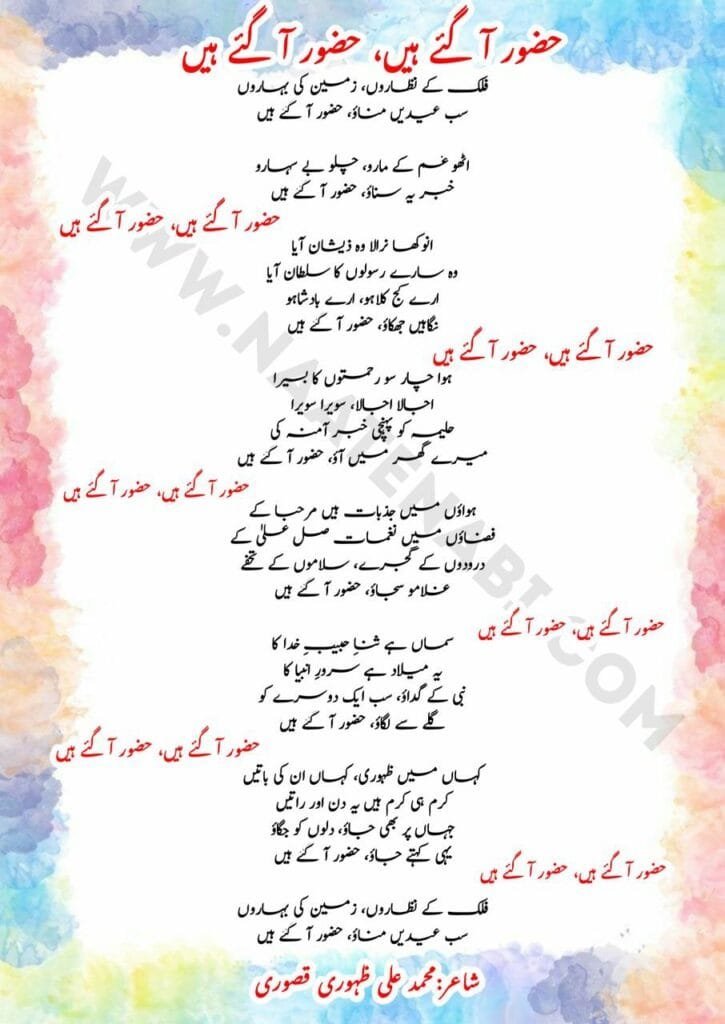 حضور آ گئے ہیں، حضور آ گئے ہیں
فلک کے نظاروں، زمین کی بہاروں
سب عیدیں مناؤ، حضور آ گئے ہیں
اٹھو غم کے مارو، چلو بے سہارو
خبر یہ سناؤ، حضور آ گئے ہیں
حضور آ گئے ہیں، حضور آ گئے ہیں
انوکھا نرالا وہ ذیشان آیا
وہ سارے رسولوں کا سلطان آیا
ارے کج کلاہو، ارے بادشاہو
نگاہیں جھکاؤ، حضور آ گئے ہیں
حضور آ گئے ہیں، حضور آ گئے ہیں
ہوا چار سو رحمتوں کا بسیرا
اجالا اجالا، سویرا سویرا
حلیمہ کو پہنچی خبر آمنہ کی
میرے گھر میں آؤ، حضور آ گئے ہیں
حضور آ گئے ہیں، حضور آ گئے ہیں
ہواؤں میں جذبات ہیں مرحبا کے
فضاؤں میں نغمات صل علیٰ کے
درودوں کے گجرے، سلاموں کے تحفے
غلامو سجاؤ، حضور آ گئے ہیں
حضور آ گئے ہیں، حضور آ گئے ہیں
سماں ہے ثناِ حبیبِ خدا کا
یہ میلاد ہے سرورِ انبیا کا
نبی کے گداؤ، سب ایک دوسرے کو
گلے سے لگاؤ، حضور آ گئے ہیں
حضور آ گئے ہیں، حضور آ گئے ہیں
کہاں میں ظہوری، کہاں ان کی باتیں
کرم ہی کرم ہیں یہ دن اور راتیں
جہاں پر بھی جاؤ، دلوں کو جگاؤ
یہی کہتے جاؤ، حضور آ گئے ہیں
حضور آ گئے ہیں، حضور آ گئے ہیں
فلک کے نظاروں، زمین کی بہاروں
سب عیدیں مناؤ، حضور آ گئے ہیں
شاعر: محمد علی ظہوری قصوری
WWW.NAATENABI.COM